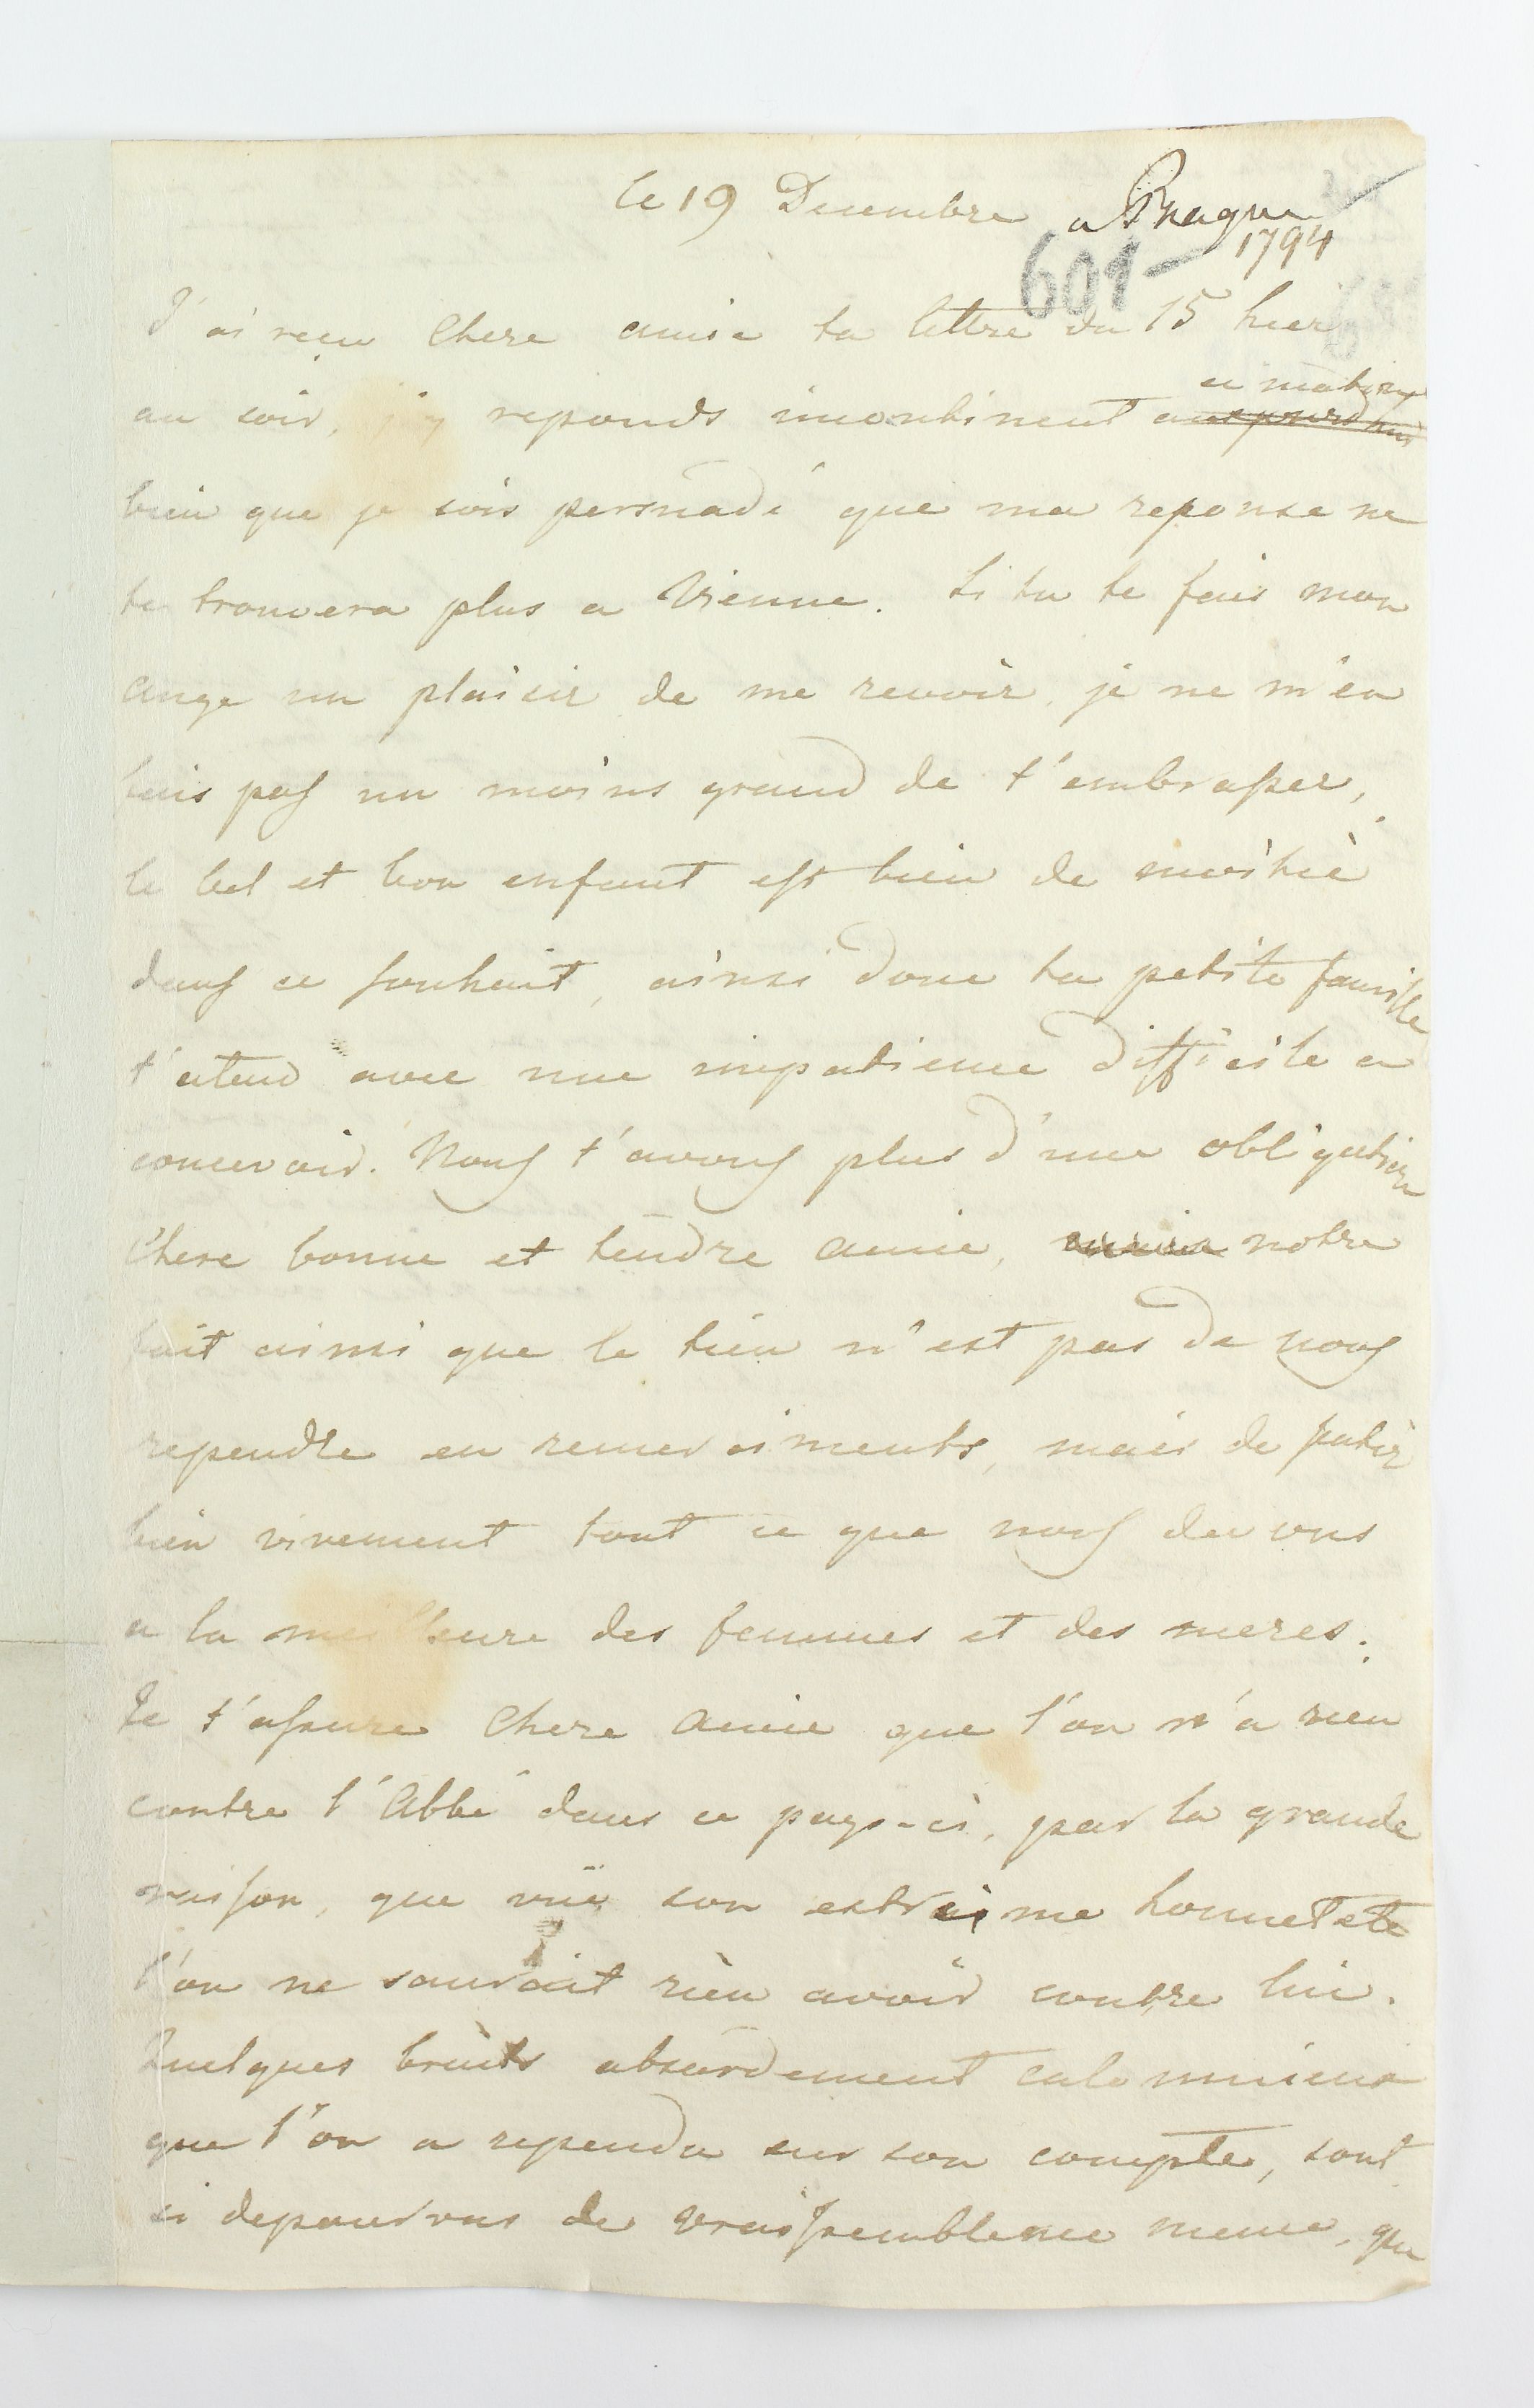 le 19 Decembre a Prague
1794
601
J'ai reçu Chere amie ta lettre du 15 hier
ce matin
au soir, j'y reponds incontinent aujourd'hui
bien que je sois persuadé que ma reponse ne
te trouvera plus a Vienne. Si tu te fais mon
ange un plaisir de me revoir, je ne m'en
fais pas un moins grand de t'embrasser,
le bel et bon enfant est bien de moitiè
dans ce souhait, ainsi donc ta petite famille
t'atend avec une impatience difficile a
concevoir. Nous t'avons plus d'une obligation
Chere bonne et tendre amie, notre
fait ainsi que le tien n'est pas de nous
rependre en remerciments, mais de sentir
bien vivement tout ce que nous devons
a la meilleure des femmes et des meres.
Je t'assure Chere amie que l'on n'a rien
contre l'Abbé dans ce pays-ci, par la grande
raison, que vuë son extreime honnetete
l'on ne sauroit rien avoir contre lui.
Quelques bruits absurdement calomnieux
que l'on a rependu sur son compte, sont
si depourvus de vraissemblence meme, que